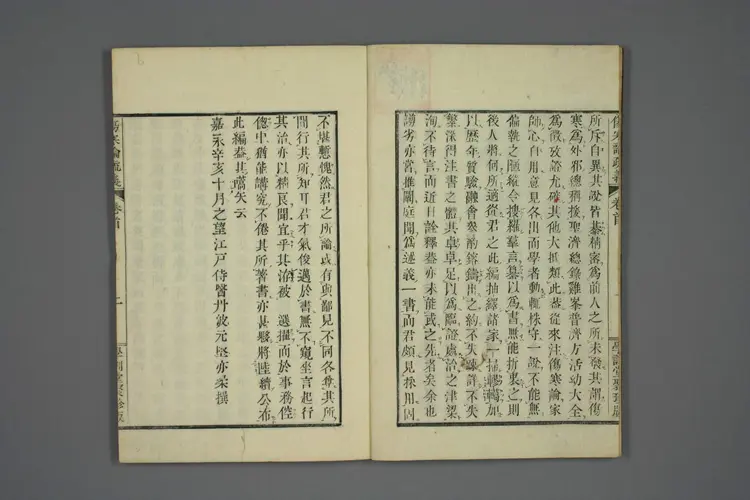 所斥自異其說皆綦精審爲前人之所未發其謂傷
寒爲外邪總稱援聖濟總錄雞峯普濟方活動大全
爲徵攷證尤確其他大抵類此蓋從來注傷寒論家
師心自用意見各出而學者動輒株守一說不能無
偏執之陋縱令搜羅羣言纂以爲書無能折衷之則
後人將何所適從君之此編抽繹諸家
以歷年實驗融會衆說鎔鑄出之約不失疎詳不失
繁深得注書之體其卓卓足以爲臨證處治之津梁
洵不待言而近日詮釋蓋亦未能或之先者矣余也
謭劣亦嘗推闡庭聞爲述義一書而君頗見採用因
不堪慙愧然君之所論或有與鄙見不同各尊其所
聞行其所知耳君才氣俊邁於書無不窺坐言起行
其治亦以精良聞宜乎其洊被 選擢而於事務倥
傯中猶能講究不倦其所著書亦甚夥將陸續公布
此編蓋其嚆矢云
嘉永辛亥十月之望江戶侍醫丹波元堅亦柔撰
傷寒論疏義 卷首